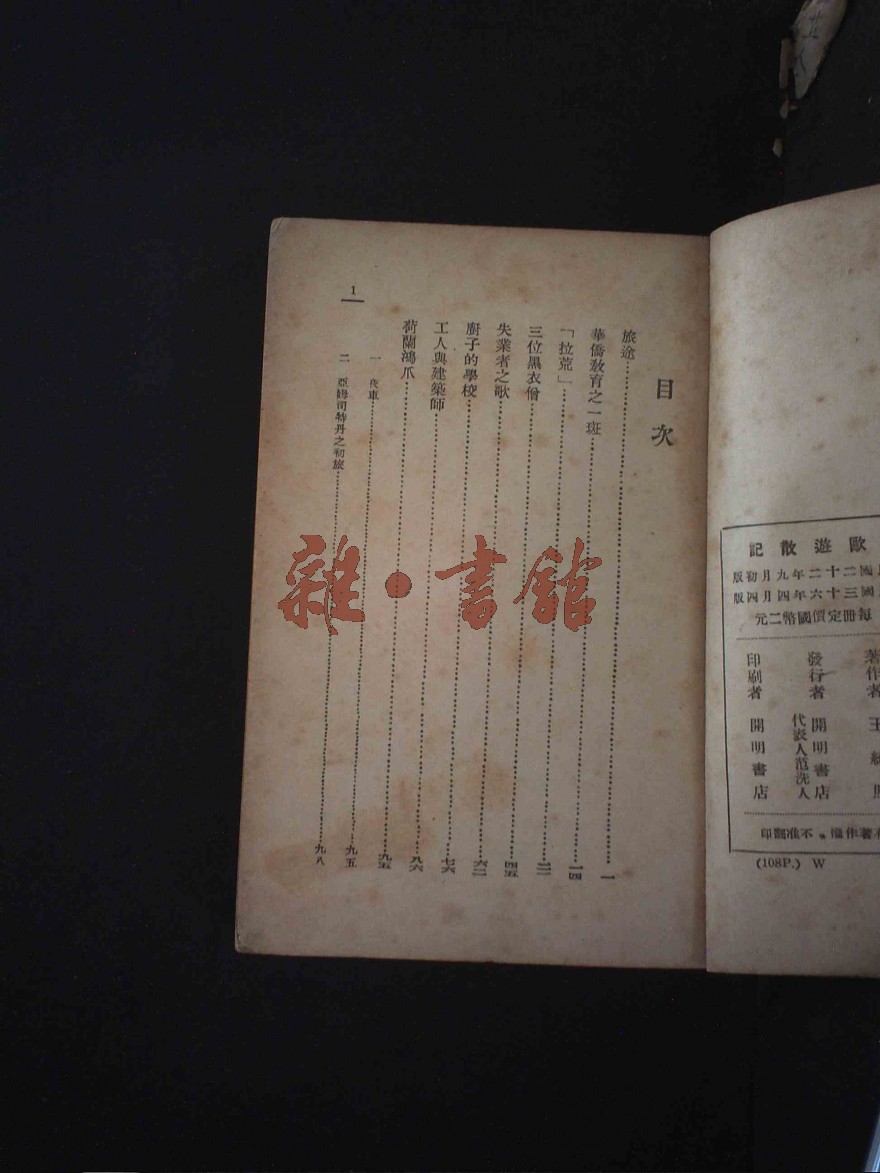 歐遊散記
國二十二年九月初版
國三十六年四月四版
每冊定價國幣二元
著作者 王統照
發行者 開明書店
代表人范洗人
印刷者 開明書店
有著作權・不准翻印
(108P.) W
目次
旅途……一
華僑教育之一斑……一四
「拉荒」……
三位黑衣僧……四五
失業者之歌……六二
廚子的學校……七六
工人與建築師……八六
荷蘭鴻爪……九五
一 夜車……九五
二 亞姆司特丹之初旅……九八
1
雜・書館